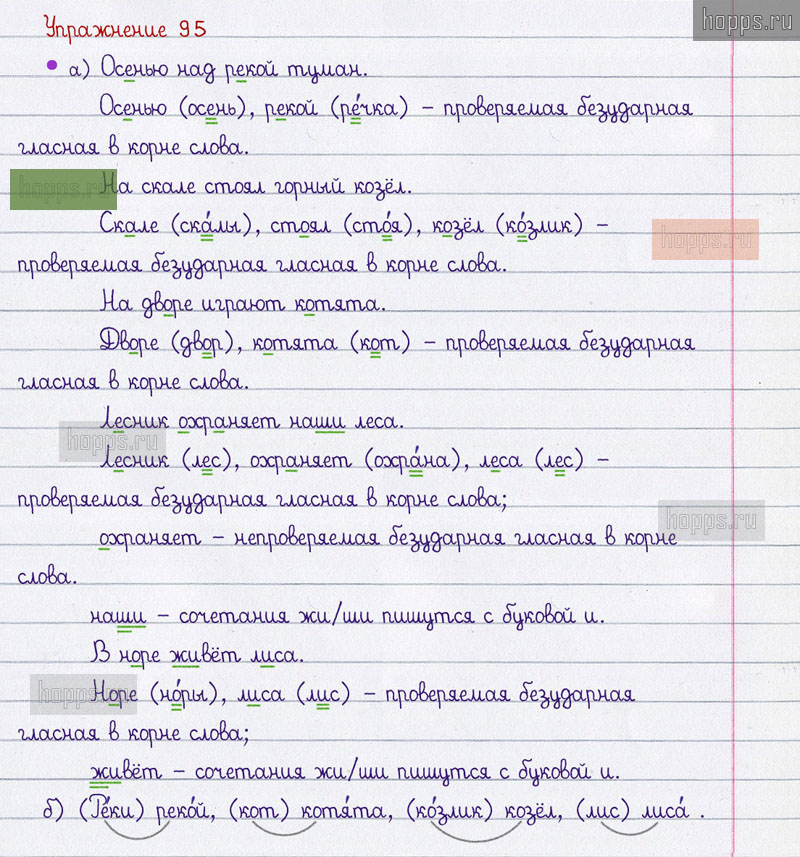 hopps.ru
Упражнение 95
а) Осенью над рекой туман.
Осенью (осень), рекой (ре́чка) – проверяемая безударная
гласная в корне слова.
hopps.ru
На скале стоял горный козёл.
Скале (ска́лы), стоял (сто́я), козёл (ко́злик) –
hopps.ru
проверяемая безударная гласная в корне слова.
На дворе играют котята.
Дворе (двор), котята (кот) – проверяемая безударная
гласная в корне слова.
Лесник охраняет наши леса.
hopps.ru
Лесник (лес), охраняет (охра́на), леса (лес) –
проверяемая безударная гласная в корне слова;
hopps.ru
охраняет – непроверяемая безударная гласная в корне
слова.
наши – сочетания жи/ши пишутся с буковой и.
В норе живёт лиса.
hopps.ru
Норе (но́ры), лиса (лис) – проверяемая безударная
гласная в корне слова;
живёт – сочетания жи/ши пишутся с буковой и.
б) (Ре́ки) реко́й, (кот) котя́та, (ко́злик) козёл, (лис) лиса́ .